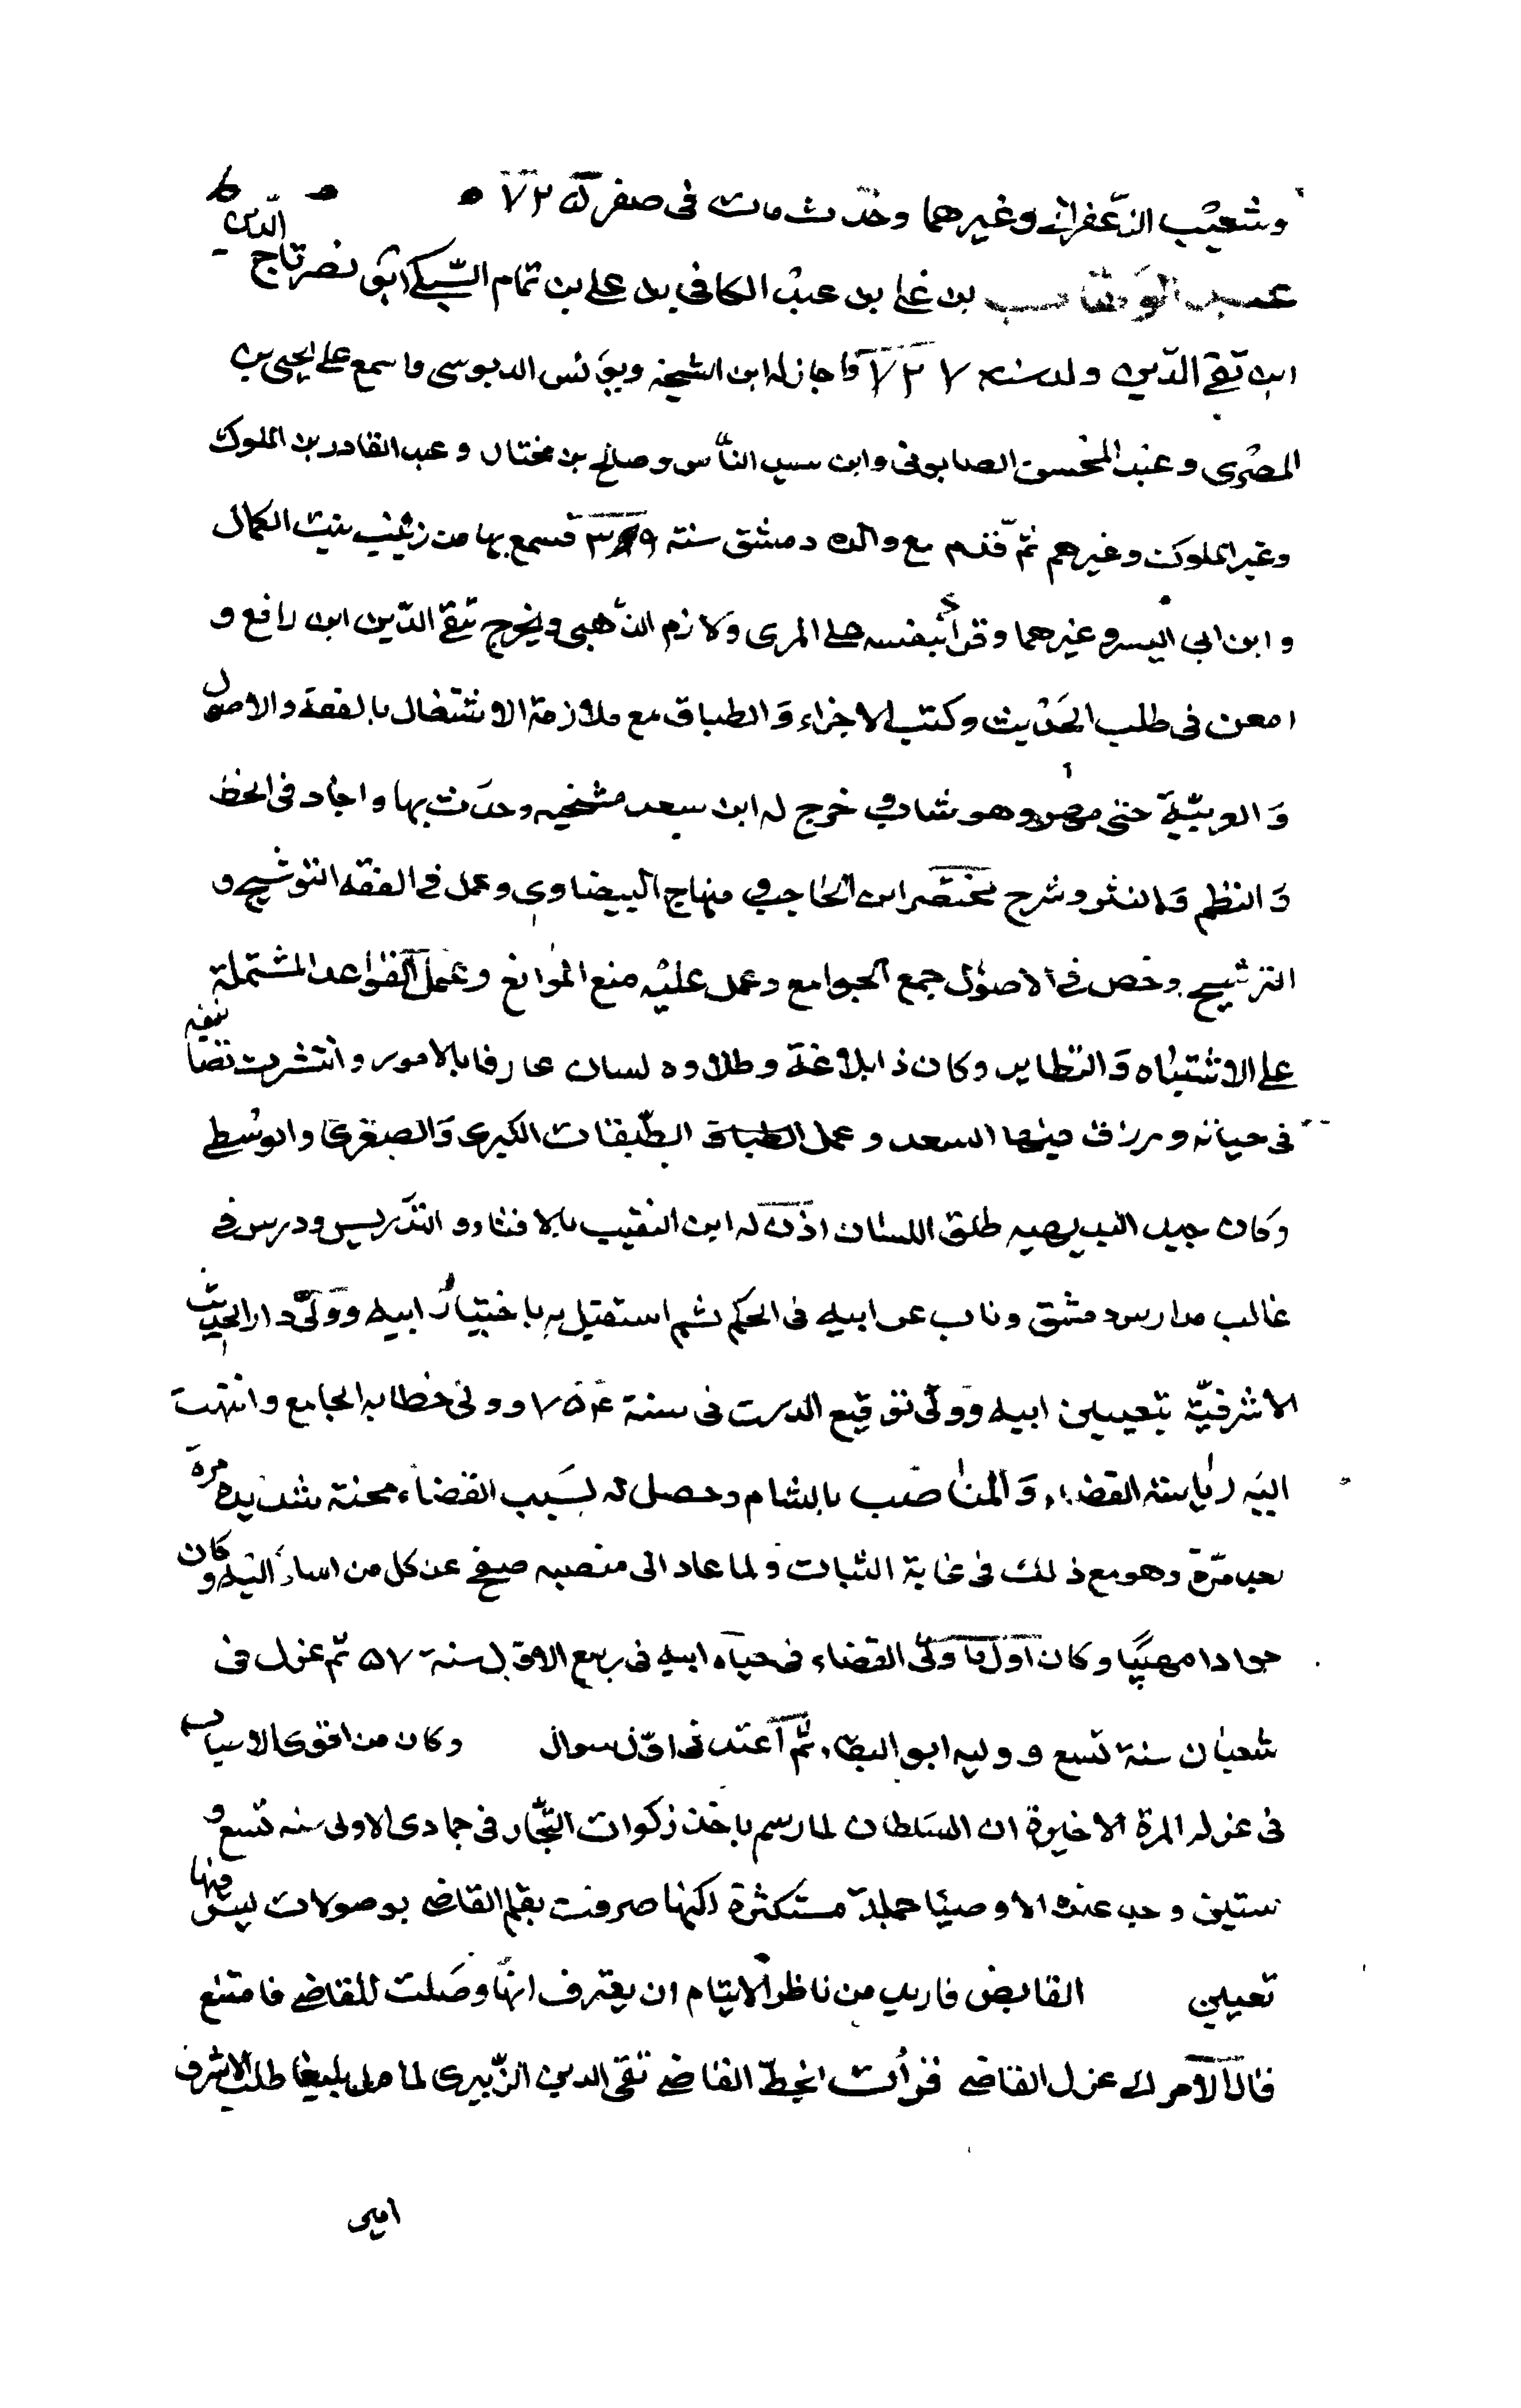 وشعيب الزعفراني وغيرهما وحدث مات في صفر ٧٢٥
عبد الوهاب بن علي بن عبد الكافي بن علي بن تمام السبكي ابو نصر تاج الدين
ابن تقي الدين ولد سنة ٧٢٧ واجاز له ابن الشحنة ويونس الدبوسي واسمع علي يحيى بن
المصري وعبد المحسن الصابوني وابن سيد الناس وصالح بن مختار وعبد القادر بن الملوك
وغير الملوك وغيرهم ثم قدم مع والده دمشق سنة ٣٩ فسمع بها من زينب بنت الكمال
وابن ابي اليسر وغيرهما وقرأ بنفسه علي المزي ولازم الذهبي وتخرج بتقي الدين ابن رافع و
امعن في طلب الحديث وكتب الاجزاء والطباق مع ملازمة الاشتغال بالفقه والاصول
والعربية حتي مهر وهو شاب خرج له ابن سعد مشيخة وحدث بها واجاد في الخط
والنظم والنثر وشرح مختصر ابن الحاجب و منهاج البيضاوي وعمل في الفقه التوشيح و
الترشيح وخص في الاصول جمع الجوامع وعمل عليه منع الموانع وعمل القواعد المشتملة
علي الاشتباه والنظاير وكان ذا بلاغة وطلاوة لسان عارفا بالامور وانتشرت تصانيفه
في حياته ورزق فيها السعد وعمل الطبقات الكبرى والصغرى والوسطى
وكان جيد البديهه طلق اللسان اذن له ابن النقيب بالافتاء و التدريس ودرس في
غالب مدارس دمشق وناب عن ابيه في الحكم ثم استقل به باختيار ابيه وولي دار الحديث
الاشرفية بتعيين ابيه وولي توقيع الدست في سنة ٧٥٤ وولي خطابه الجامع وانتهت
اليه رياسة القضاء والمناصب بالشام وحصل له بسبب القضاء محنة شديده مرة
بعد مرة وهو مع ذلك في غاية الثبات ولما عاد الى منصبه صفح عن كل من اساء اليه وكان
جوادا مهيبا وكان اول ما ولي القضاء في حياة ابيه في ربيع الاول سنة ٥٧ ثم عزل في
شعبان سنة تسع و وليه ابو البقاء ثم اعيد في اول سوال وكان من اقوى الاسباب
في عزله المرة الاخيرة ان السلطان لما رسم باخذ زكوات التجار في جمادى الاولى سنه تسع و
ستين وجد عند الاوصيا جملة مستكثرة لكنها صرفت بقلم القاضي بوصولات ليس فيها
تعيين القابض فاريد من ناظر الايتام ان يعترف انها وصلت للقاضي فامتنع
فال الامر الي عزل القاضي قرأت بخط القاضي تقي الدين الزبيري لما ملك يلبغا طلب الاشرف